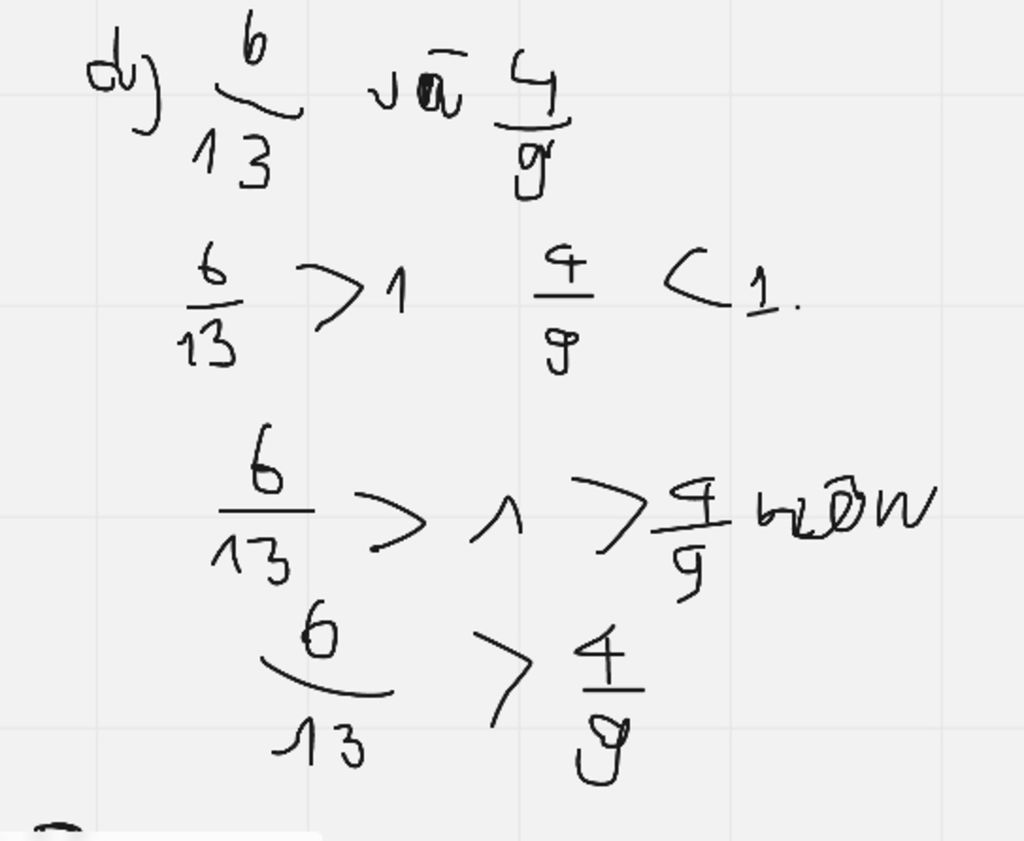 d) 6/13 và 4/9
6/13 > 1 4/9 < 1.
6/13 > 1 > 4/9
6/13 > 4/9